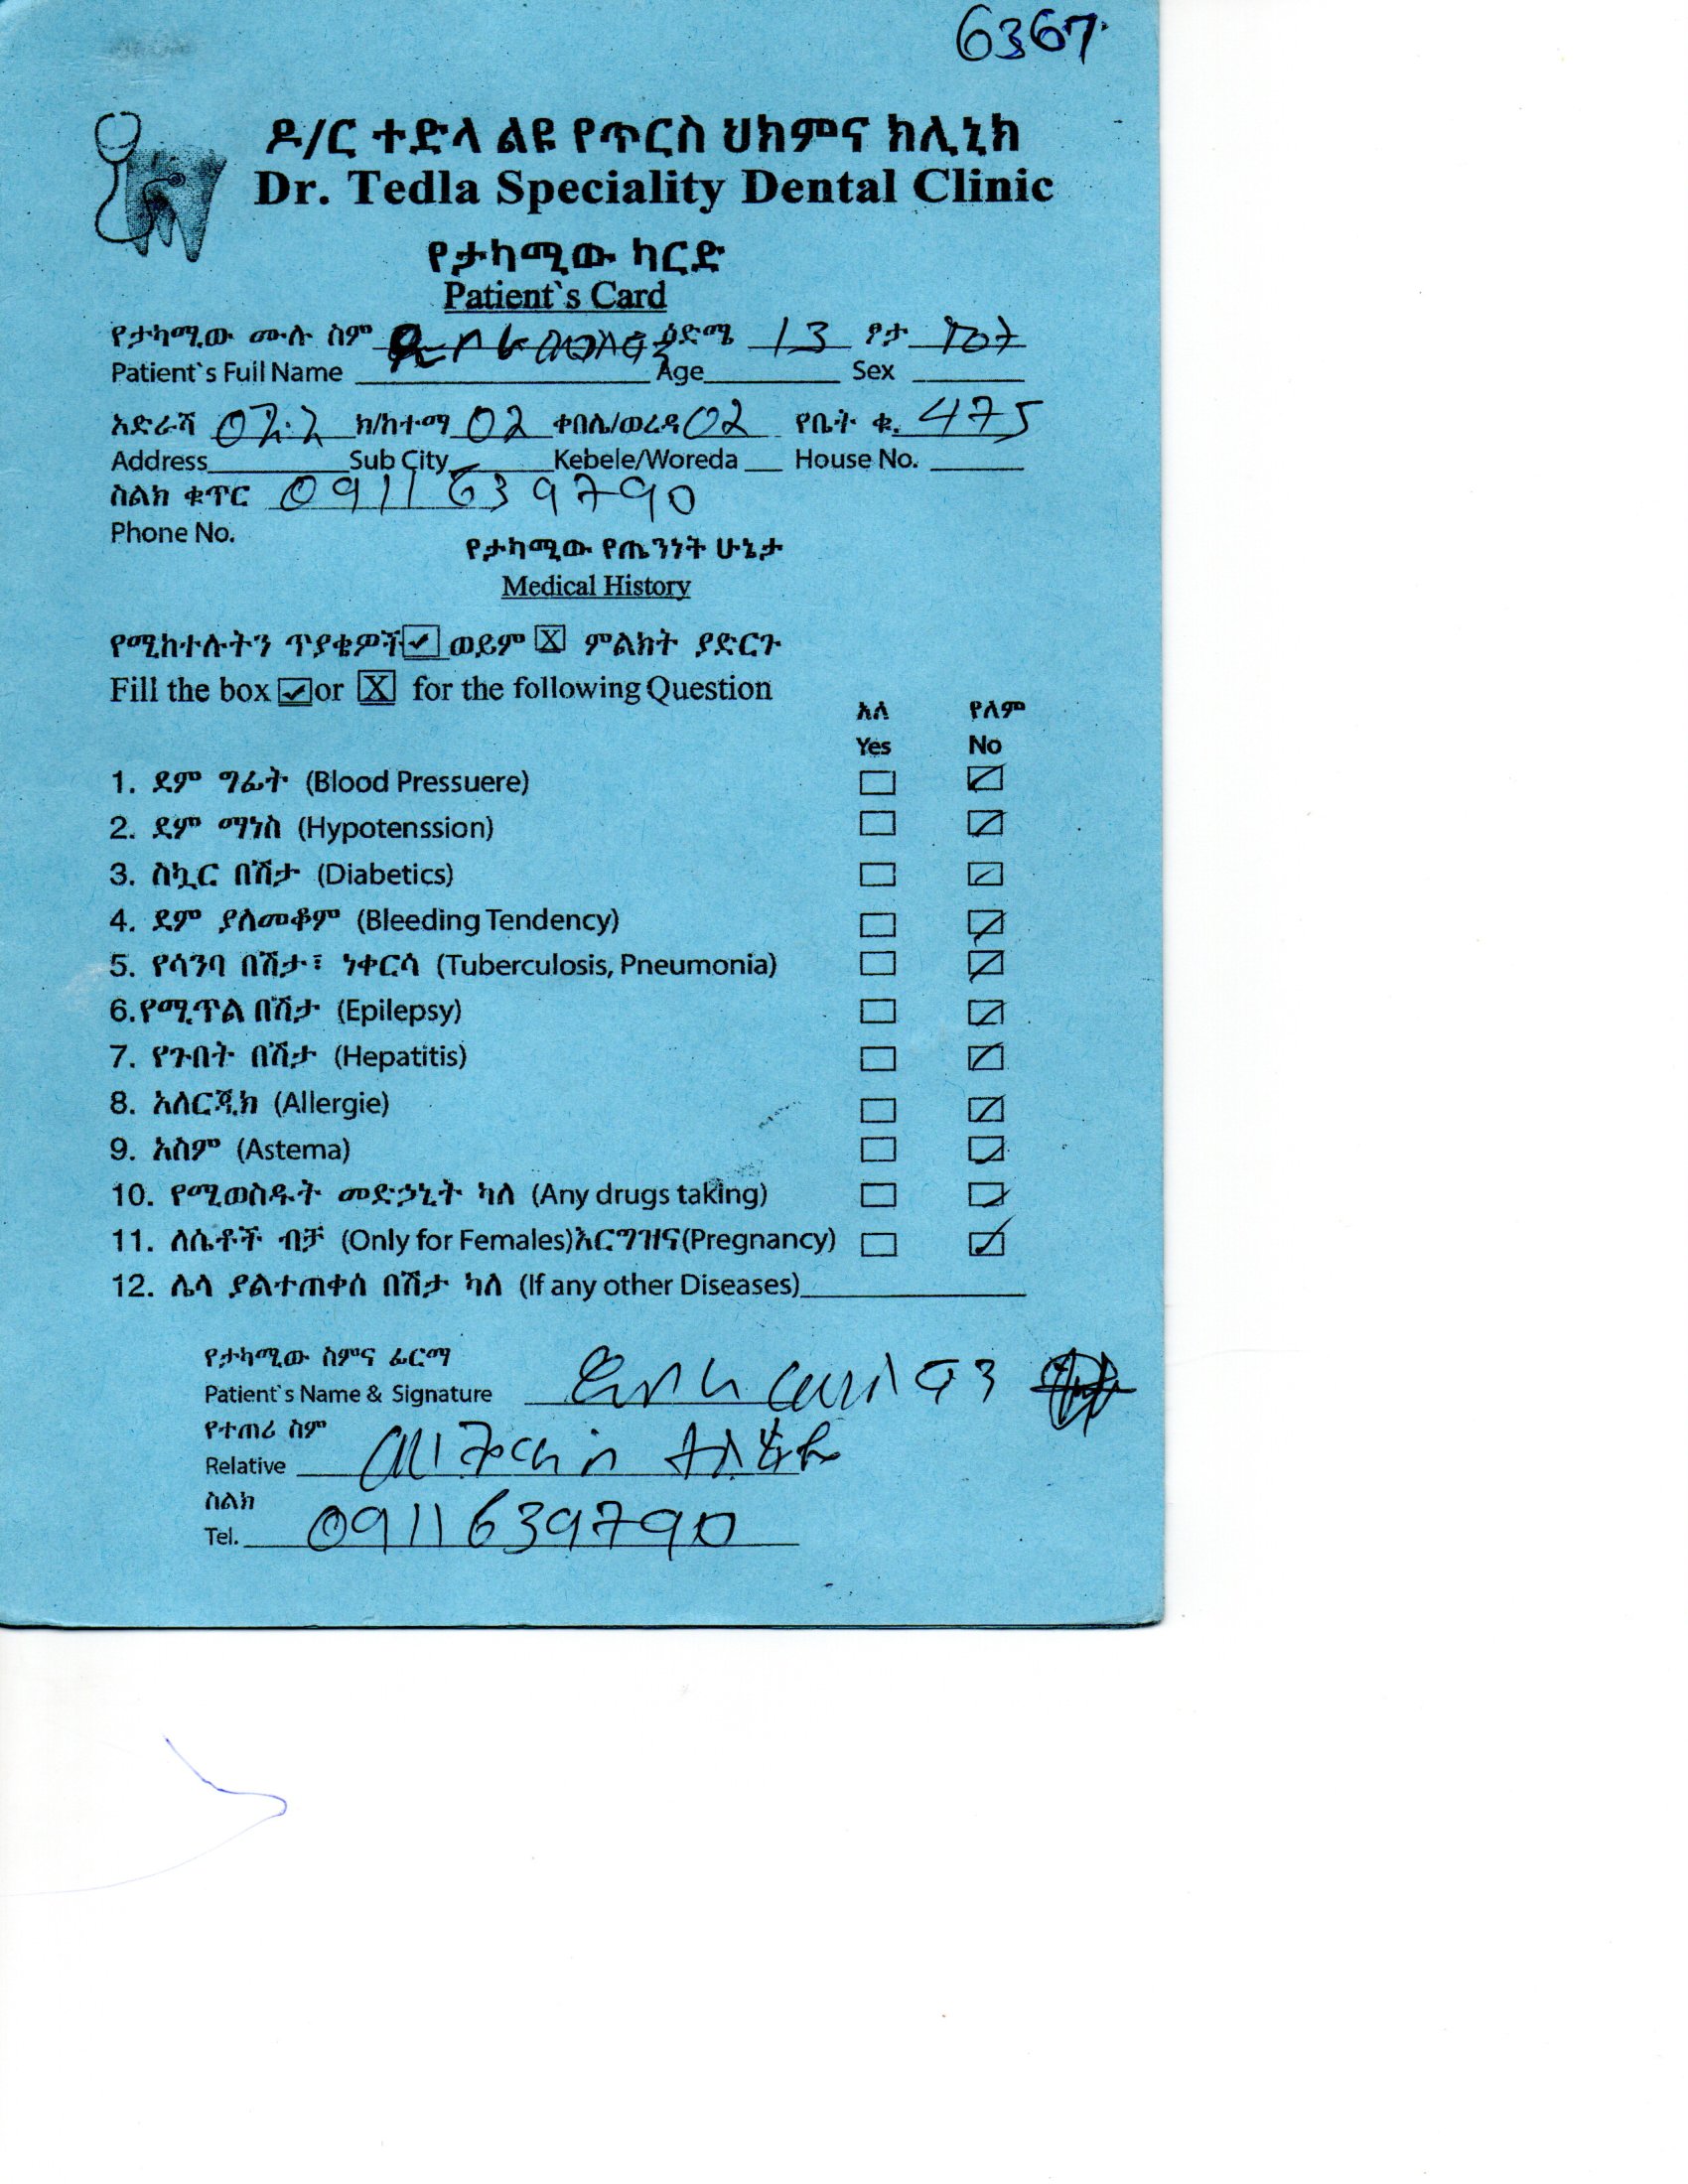 6367
ዶ/ር ተድላ ልዩ የጥርስ ህክምና ክሊኒክ
Dr. Tedla Speciality Dental Clinic
የታካሚው ካርድ
Patient`s Card
የታካሚው ሙሉ ስም ዕድሜ 13 ፆታ ሴት
Patient`s Full Name Age Sex
አድራሻ ክ/ከተማ 02 ቀበሌ/ወረዳ 02 የቤት ቁ. 475
Address Sub City Kebele/Woreda House No.
ስልክ ቁጥር 0911639790
Phone No.
የታካሚው የጤንነት ሁኔታ
Medical History
የሚከተሉትን ጥያቄዎች ✓ ወይም X ምልክት ያድርጉ
Fill the box ✓ or X for the following Question
አለ የለም
Yes No
1. ደም ግፊት (Blood Pressuere) ☐ ☑
2. ደም ማነስ (Hypotenssion) ☐ ☑
3. ስኳር በሽታ (Diabetics) ☐ ☑
4. ደም ያለመቆም (Bleeding Tendency) ☐ ☑
5. የሳንባ በሽታ፣ ነቀርሳ (Tuberculosis, Pneumonia) ☐ ☑
6.የሚጥል በሽታ (Epilepsy) ☐ ☑
7. የጉበት በሽታ (Hepatitis) ☐ ☑
8. አለርጂክ (Allergie) ☐ ☑
9. አስም (Astema) ☐ ☑
10. የሚወስዱት መድኃኒት ካለ (Any drugs taking) ☐ ☑
11. ለሴቶች ብቻ (Only for Females)እርግዝና(Pregnancy) ☐ ☑
12. ሌላ ያልተጠቀሰ በሽታ ካለ (If any other Diseases)
የታካሚው ስምና ፊርማ
Patient`s Name & Signature
የተጠሪ ስም
Relative
ስልክ
Tel. 0911639790